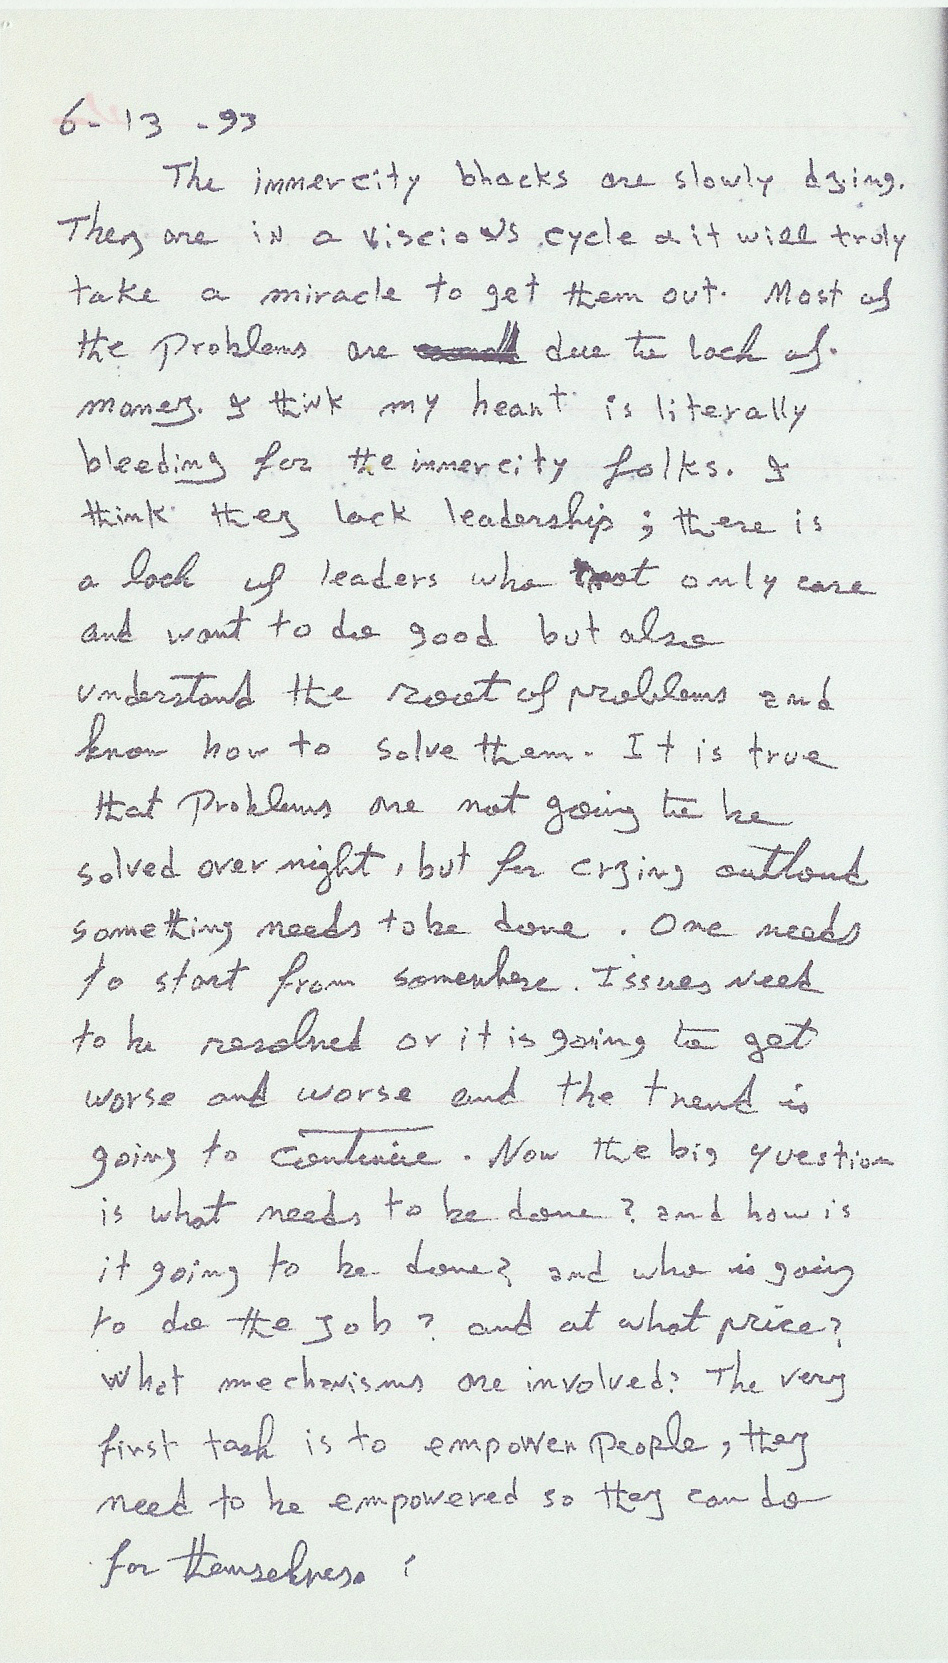 6-13-93
The innercity blacks are slowly dying.
They are in a viscious cycle & it will truly
take a miracle to get them out. Most of
the problems are due to lack of
money. I think my heart is literally
bleeding for the innercity folks. I
think they lack leadership; there is
a lack of leaders who not only care
and want to do good but also
understand the root of problems and
know how to solve them. It is true
that problems are not going to be
solved overnight, but for crying outloud
something needs to be done. One needs
to start from somewhere. Issues need
to be resolved or it is going to get
worse and worse and the trend is
going to continue. Now the big question
is what needs to be done? and how is
it going to be done? and who is going
to do the job? and at what price?
What mechanisms are involved? The very
first task is to empower people, they
need to be empowered so they can do
for themselves.